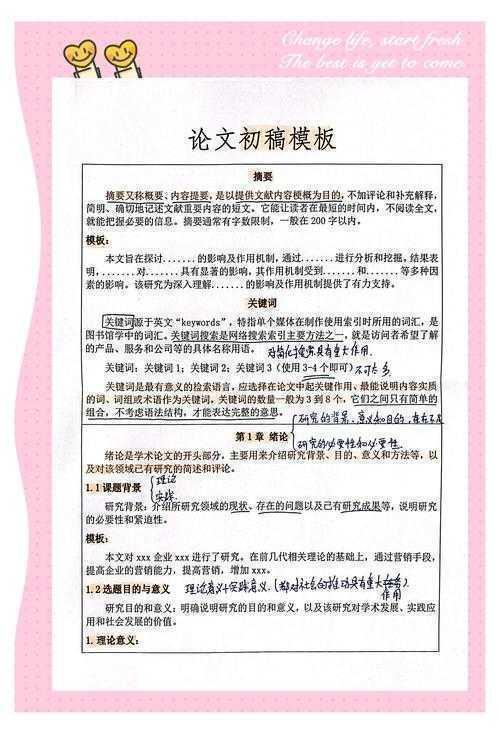 Change life, start fresh
The best is yet to come
论文初稿模板
摘要
摘要又称概要、内容提要，是以提供文献内容梗概为目的，不加评论和补充解释，
简明、确切地记述文献重要内容的短文。它能让读者在最短的时间内，不阅读全文，
就能把握必要的信息。摘要通常有字数限制，一般在 200 字以内。
模板：
本文旨在探讨.......的影响及作用机制，通过.......进行分析和挖掘。结果表
明，.......对......具有显著的影响，其作用机制受到......和......等多种因
素的影响。该研究为深入理解.......的影响及作用机制提供了有力支持。
关键词
关键词源于英文“keywords”，特指单个媒体在制作使用索引时所用的词汇，是
图书馆学中的词汇。关键词搜索是网络搜索索引主要方法之一，就是访问者希望了解
的产品、服务和公司等的具体名称用语。 对简化搜索具有重大作用.
关键词：关键词 1；关键词 2；关键词 3（使用 3-4 个即可）不可太多
关键词是最有意义的检索语言，应选择在论文中起关键作用、最能说明内容实质
的词、词组或术语作为关键词，关键词的数量一般为 3 到 8 个，它们之间只有简单的
组合，不考虑语法结构，才能表达完整的意思。
研究的背景、意义和目的，
第 1 章 绪论
研究的必要性和
绪论是学术论文的开头部分，主要用来介绍研究背景、目的、意义和方法等，以
及对该领域已有研究的简述和评论。
1.1 课题背景 理论
实践
研究背景：介绍所研究领域的现状、存在的问题以及已有研究成果等，说明研究
的必要性和紧迫性。
模板：
本文对 xxx 企业 xxx 进行了研究。在前几代相关理论的基础上，通过营销手段，
提高企业的营销能力，提高营销，增加 xxx。
1.2 选题目的与意义 理论意义+实践意义.(都对社会的推动具有重大
作用
研究目的和意义：明确说明研究的目的和意义，以及该研究对学术发展、实践应
用和社会发展的价值。
1. 理论意义：